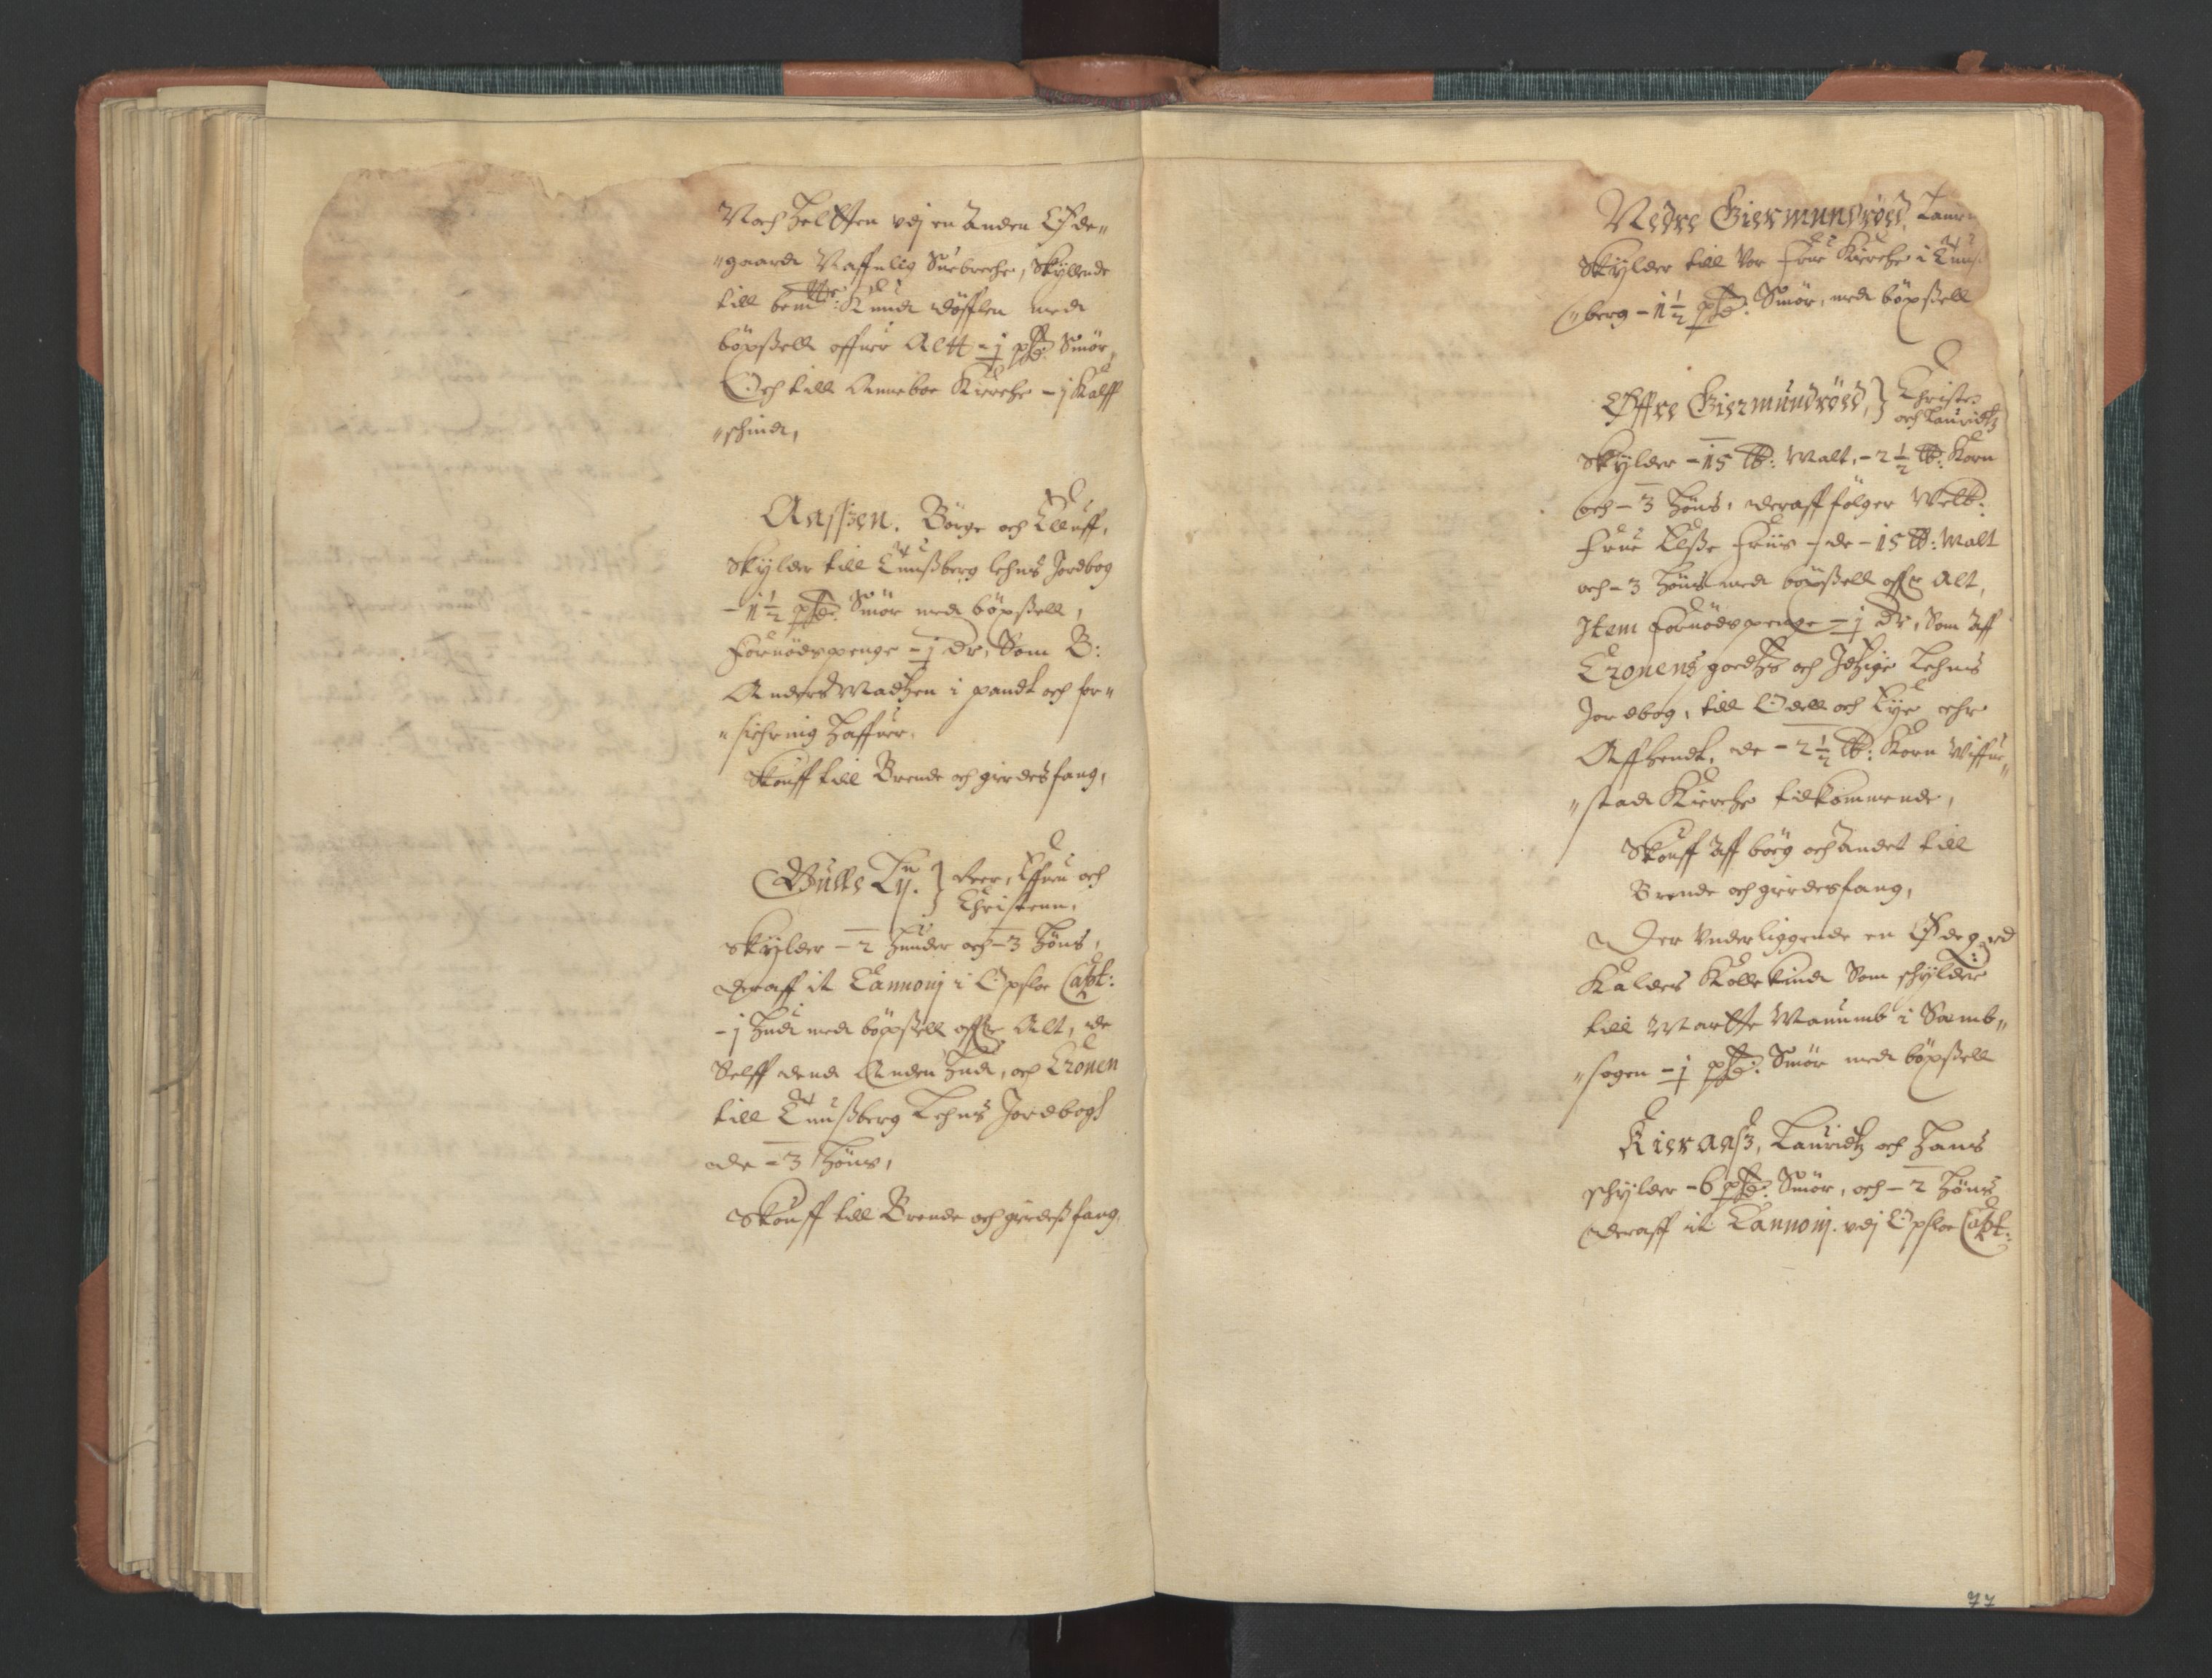 Noch Helfften vdj en Anden Øde„
„gaard Naffnlig Surbreche, Skyllende
till bemte: Knud Døfflen med
böxsell offuer Altt – j pfd: Smör,
Och till Anneboe Kierche – j Kalff
„schind,
Aaszen. Börge och Elluff,
Skylder till Tunsberg lehns Jordbog
– 1½ pfd: Smör med böxsell,
Fornödspenge – j dr, Som B:
Anders Madtzen i pandt och for„
„sichring haffuer.
Skouff till Brende och gierdesfang,
Gulle Ly. } Peer, Effuen och
Christenn,
Skylder – 2 Huuder och – 3 Höns,
deraff it Cannonj i Opsloe Capt:
– j Hud med böxsell offr Alt, de
Selff dend Anden Hud, och Cronen
till Tunsberg Lehns Jordbogh
de – 3 Höns,
Skouff till Brende och gierdesfang.
Nedre Giermundröed, Laur
Skylder till Vor Frue Kierche i Tuns
„berg – 1½ pfd: Smör, med böxsell
Øffre Giermundröed, } Christen
och Lauridtz
Skylder – 15 lb: Malt, – 2½ lb: Korn
och – 3 Höns, deraff fölger Welb:
Frue Elsze Friis – de – 15 lb: Malt
och – 3 Höns med böxsell offr Alt,
Item Fornödspenge – j Dr, Som Aff
Cronens goedtz och Idtzige Lehns
Jordbog, till Odell och Eye ehr
Affhendt, de – 2½ lb: Korn Wiffue„
„stad Kierche tilkommende,
Skouff Aff börg och Andet till
Brende och gierdesfang,
Der Vnderliggende en Ødegrd
Kaldes Kollekind Som schylder
till Marthe Manumb i Samb„
„sogen – j pfd: Smör med böxsell
Kieraasz, Lauridtz och Hans
schylder – 6 pfd: Smör, och – 2 Höns
deraff it Cannonj. vdj Opsloe Capt:
77